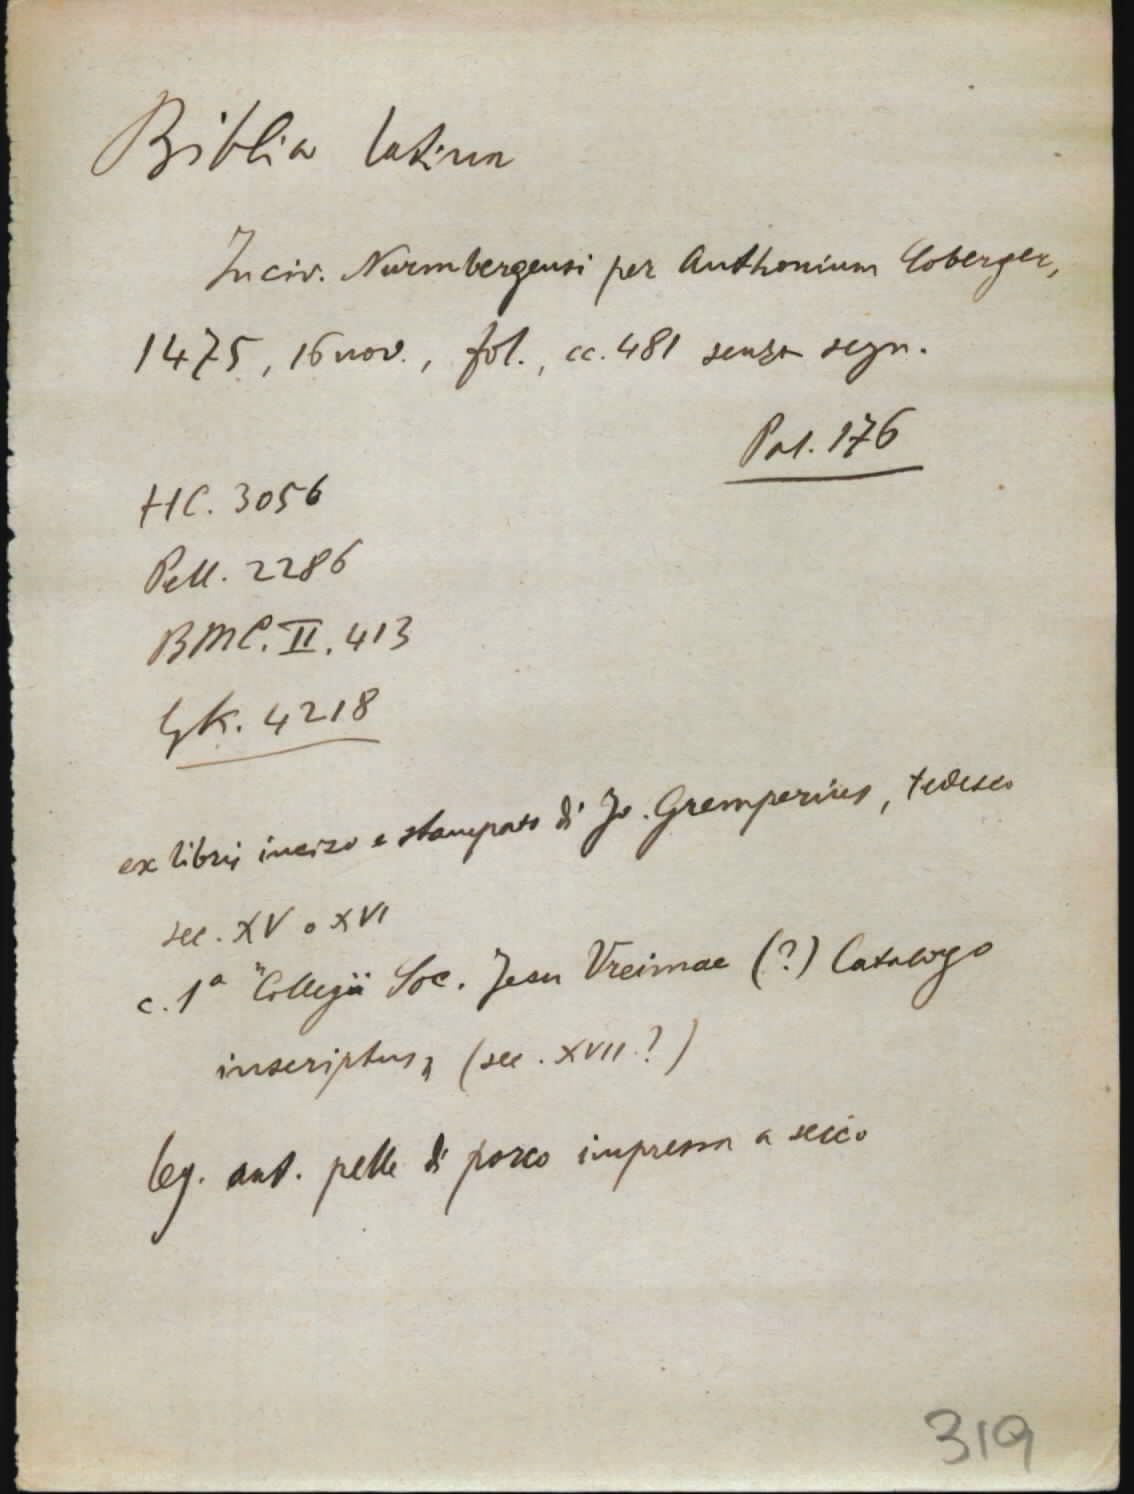 Biblia latina
In civ. Nurmbergensi per Anthonium Coberger,
1475, 16 nov., fol., cc. 481 senza segn.
Pal. 176
HC. 3056
Pell. 2286
BMC. II. 413
GK. 4218
ex libris inciso e stampato di Jo. Gremperius, tedesco
sec. XV o XVI
c. 1ª "Collegii Soc. Jesu Vreimae (?) Catalogo
inscriptus„ (sec. XVII ?)
leg. ant. pelle di porco impressa a secco
319